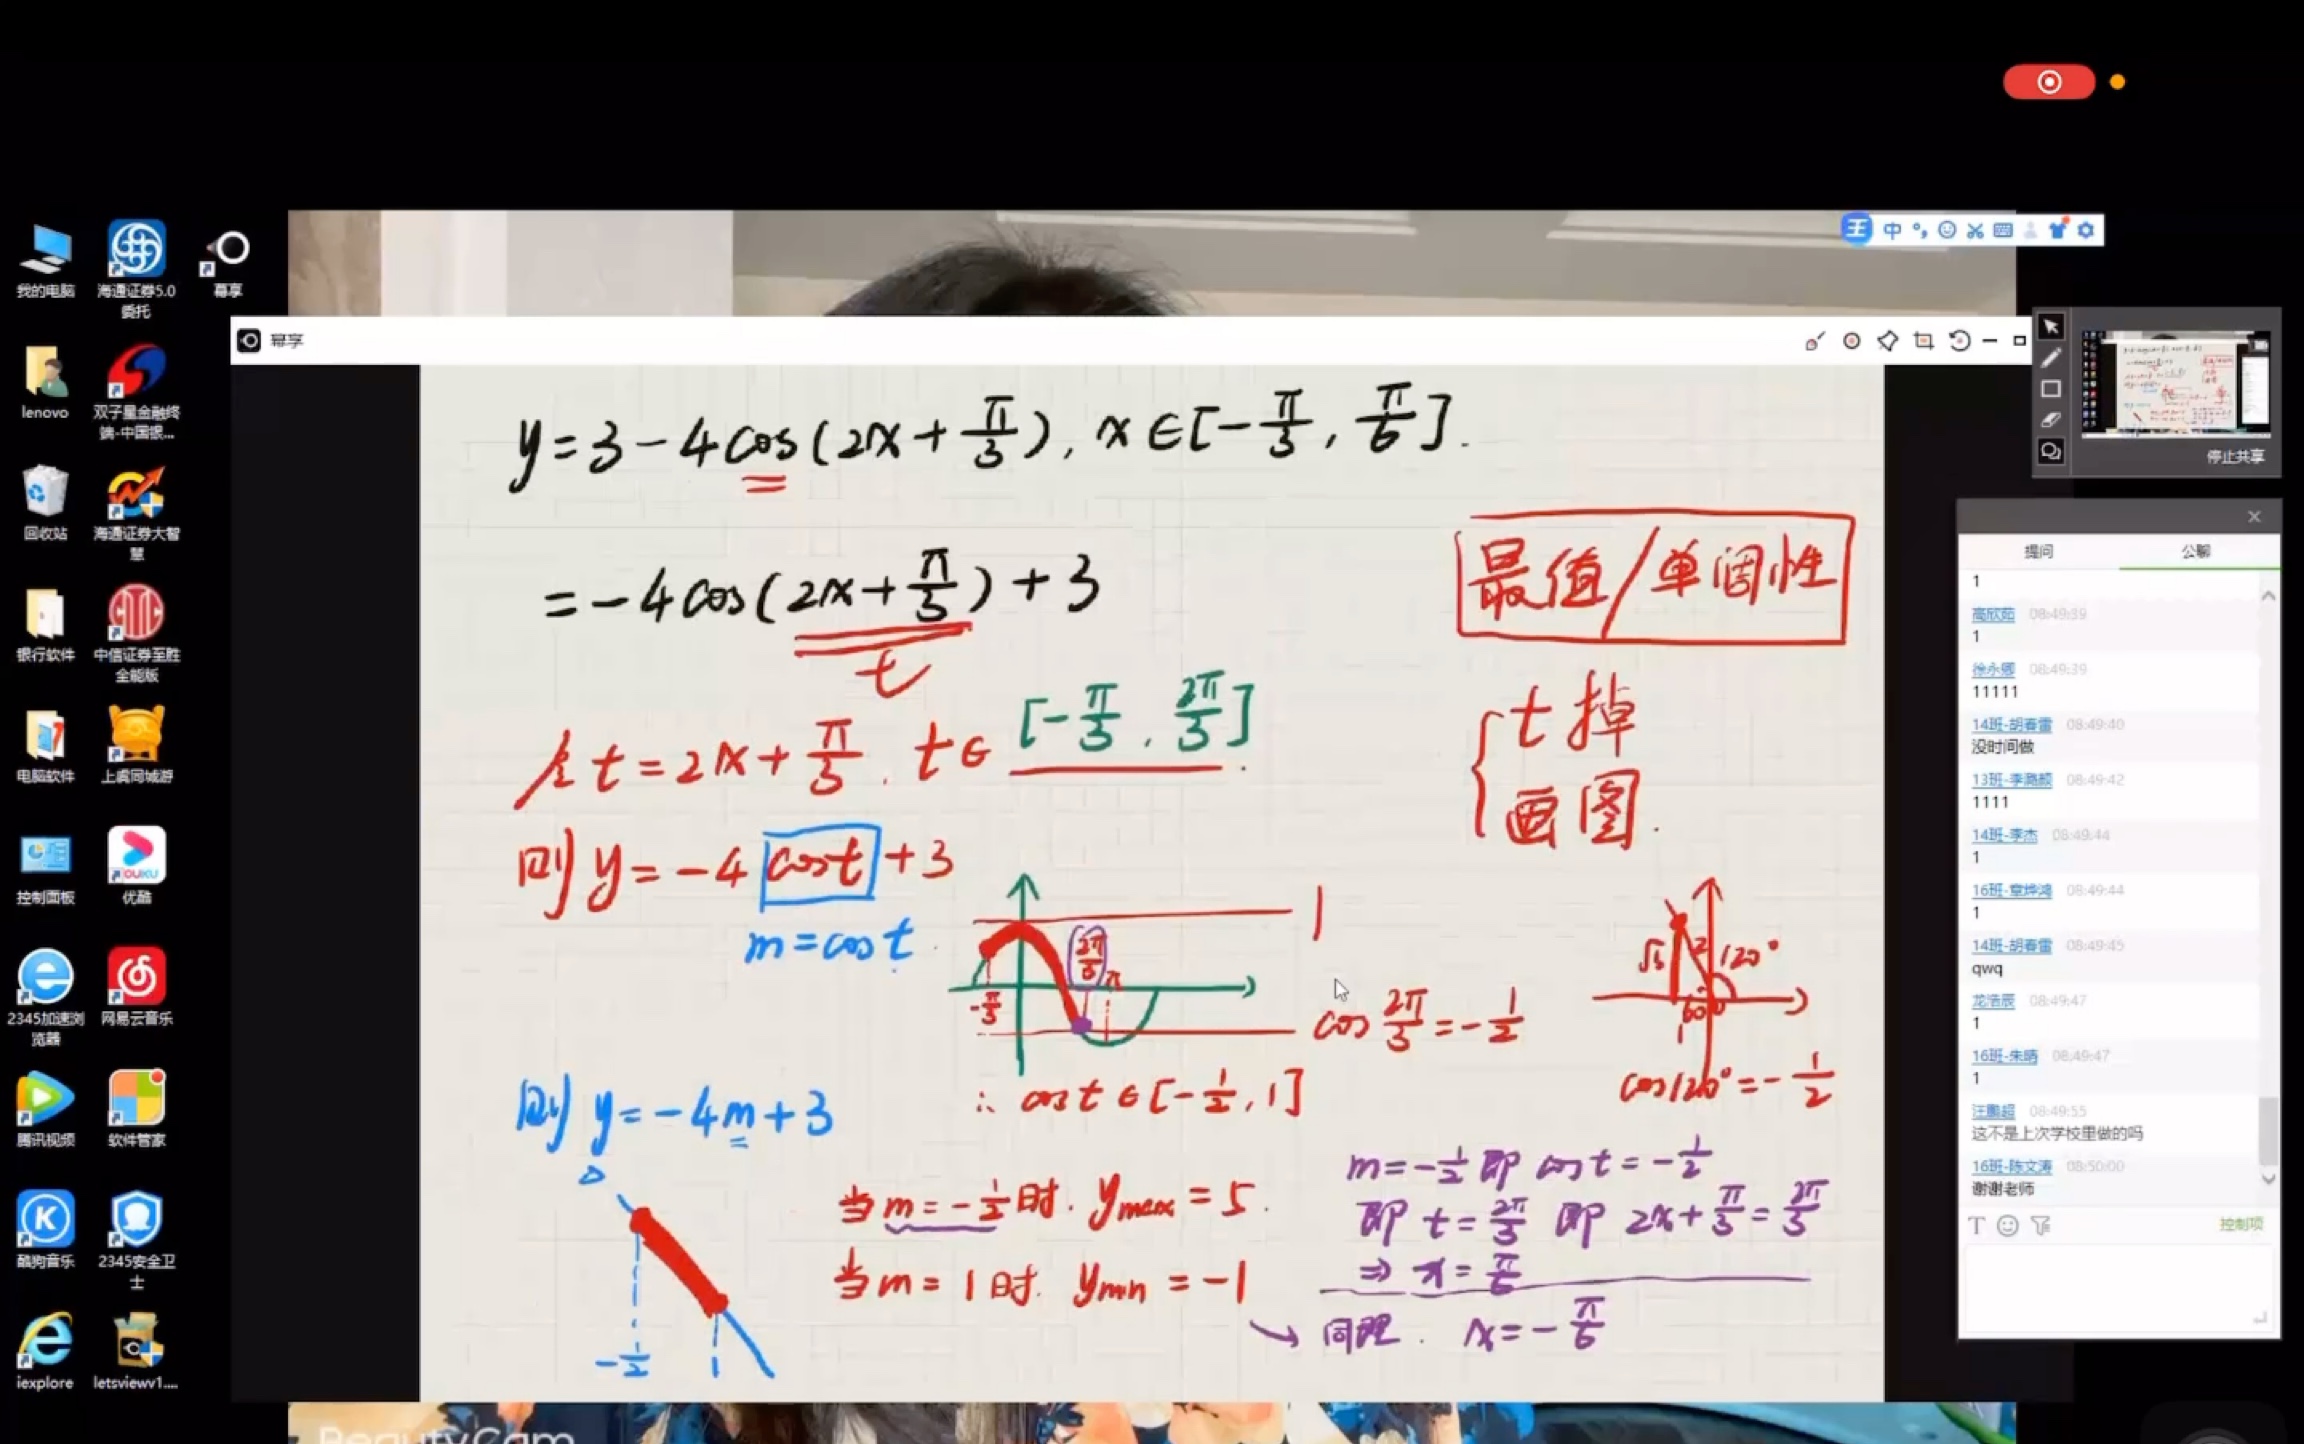 我的电脑
海通证券5.0
委托
幕享
lenovo
双子星金融终
端-中国银...
回收站
海通证券大智
慧
银行软件
中信证券至胜
全能版
电脑软件
上虞同城游
控制面板
YOUKU
优酷
2345加速浏
览器
网易云音乐
腾讯视频
软件管家
酷狗音乐
2345安全卫
士
iexplore
letsviewv1....
王 中
幕享
y=3-4cos(2x+π/3), x∈[-π/3, π/6].
=-4cos(2x+π/3)+3
t
最值/单调性
令 t=2x+π/3. t∈ [-π/3, 2π/3].
t掉
画图.
则 y=-4 cost +3
m=cost.
1
2π/3
π
-π/3
cos 2π/3=-1/2
2
120°
60°
1
cos120°=-1/2
∴ cost∈[-1/2,1]
则 y=-4m+3
-1/2
1
当m=-1/2时. ymax=5.
当m=1时. ymin=-1
m=-1/2 即 cost=-1/2
即 t=2π/3 即 2x+π/3=2π/3
⇒ x=π/6
同理. x=-π/6
停止共享
提问
公聊
1
高欣茹 08:49:39
1
徐永卿 08:49:39
11111
14班-胡春雷 08:49:40
没时间做
13班-李潞颖 08:49:42
1111
14班-李杰 08:49:44
1
16班-章烨鸿 08:49:44
1
14班-胡春雷 08:49:45
qwq
龙浩辰 08:49:47
1
16班-朱晴 08:49:47
1
汪鹏超 08:49:55
这不是上次学校里做的吗
16班-陈文涛 08:50:00
谢谢老师
控制项
BeautyCam